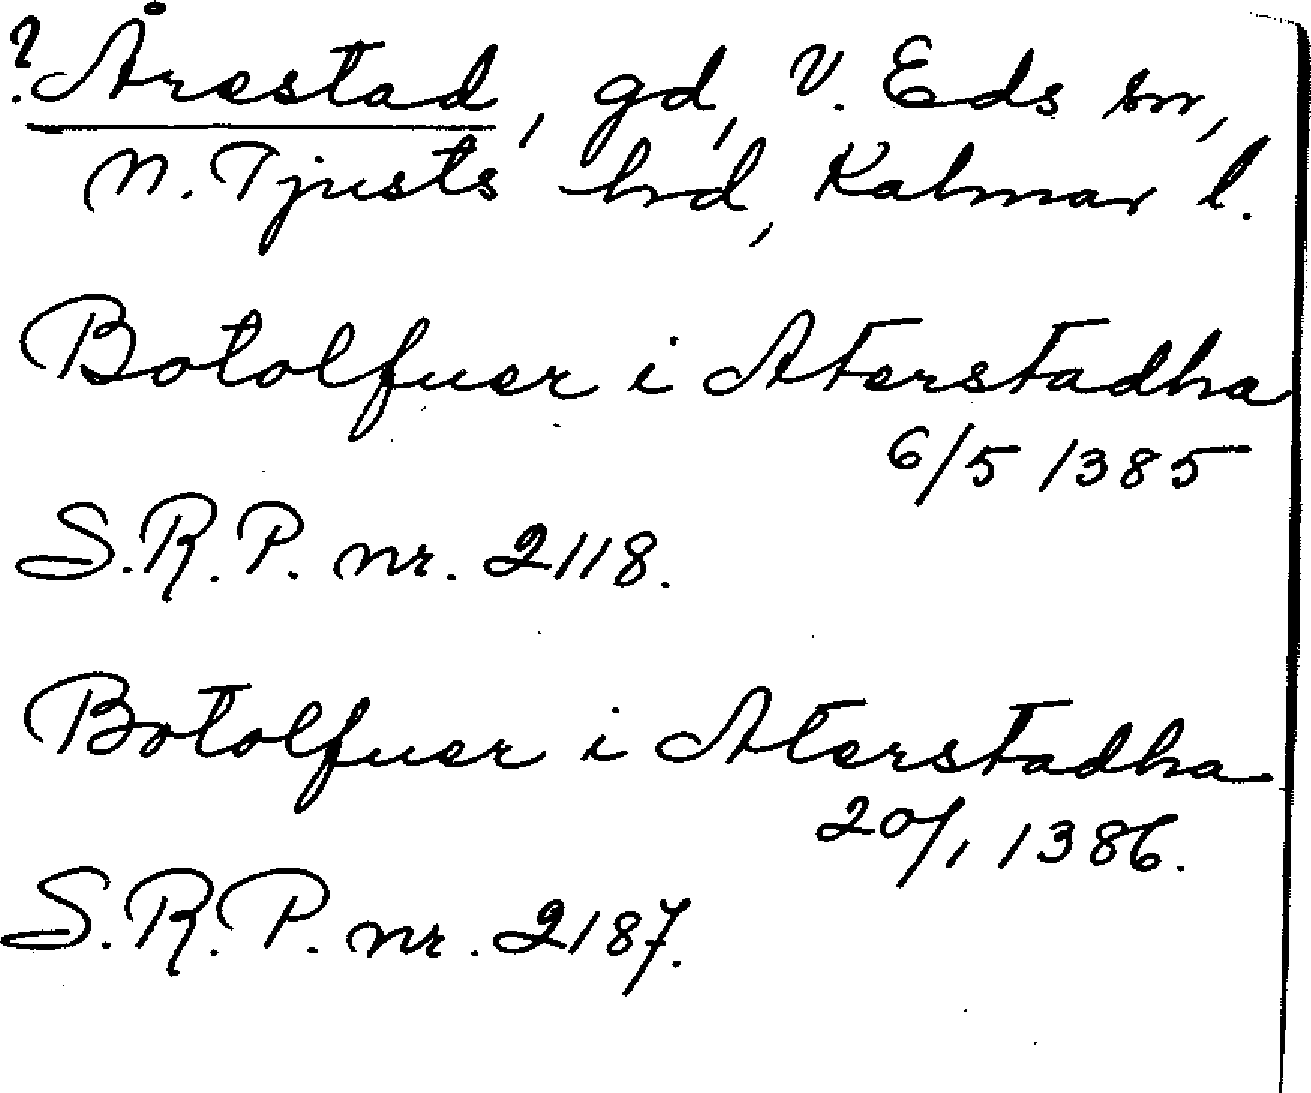 ? Årestad, gd, V. Eds sn,
N. Tjusts hrd, Kalmar l.
Botolfuer i Aterstadha
6/5 1385
S.R.P. nr. 2118.
Botolfuer i Aterstadha
20/1 1386.
S.R.P. nr. 2187.